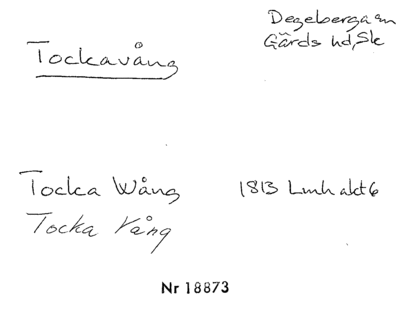 Degeberga sn
Gärds hd, Sk
Tockavång
Tocka Wång 1813 Lmh akt 6
Tocka Vång
Nr 18873